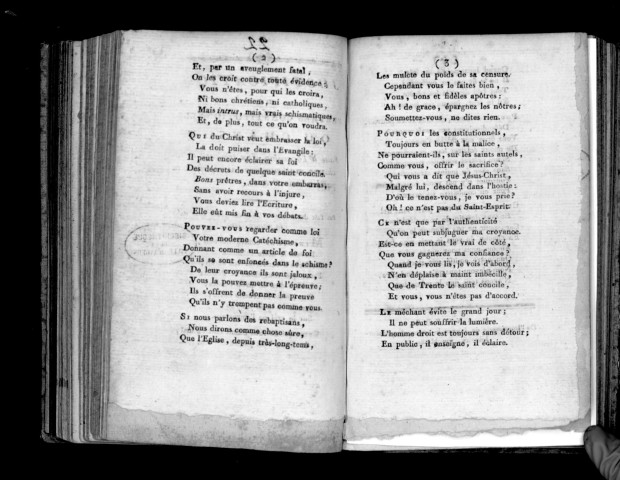 22
( 2 )
Et, par un aveuglement fatal ;
On les croit contre toute évidence ;
Vous n'êtes, pour qui les croira,
Ni bons chrétiens, ni catholiques,
Mais intrus, mais vrais schismatiques,
Et, de plus, tout ce qu'on voudra.
QUI du Christ veut embrasser la loi,
La doit puiser dans l'Evangile:
Il peut encore éclairer sa foi
Des décrets de quelque saint concile.
Bons prêtres, dans votre embarras,
Sans avoir recours à l'injure,
Vous deviez lire l'Ecriture,
Elle eût mis fin à vos débats.
POUVEZ-VOUS regarder comme loi
Votre moderne Catéchisme,
Donnant comme un article de foi
Qu'ils se sont enfoncés dans le schisme?
De leur croyance ils sont jaloux,
Vous la pouvez mettre à l'épreuve;
Ils s'offrent de donner la preuve
Qu'ils n'y trempent pas comme vous.
SI nous parlons des rebaptisans,
Nous dirons comme chose sûre,
Que l'Eglise, depuis très-long-tems,
( 3 )
Les mulcte du poids de sa censure.
Cependant vous le faites bien,
Vous, bons et fidèles apôtres:
Ah! de grace, épargnez les nôtres;
Soumettez-vous, ne dites rien.
POURQUOI les constitutionnels,
Toujours en butte à la malice,
Ne pourraient-ils, sur les saints autels,
Comme vous, offrir le sacrifice?
Qui vous a dit que Jésus-Christ,
Malgré lui, descend dans l'hostie:
D'où le tenez-vous, je vous prie?
Oh! ce n'est pas du Saint-Esprit.
CE n'est que par l'authenticité
Qu'on peut subjuguer ma croyance.
Est-ce en mettant le vrai de côté,
Que vous gagnerez ma confiance?
Quand je vous lis, je vois d'abord,
N'en déplaise à maint imbécille,
Que de Trente le saint concile,
Et vous, vous n'êtes pas d'accord.
LE méchant évite le grand jour;
Il ne peut souffrir la lumière.
L'homme droit est toujours sans détour;
En public, il enseigne, il éclaire.